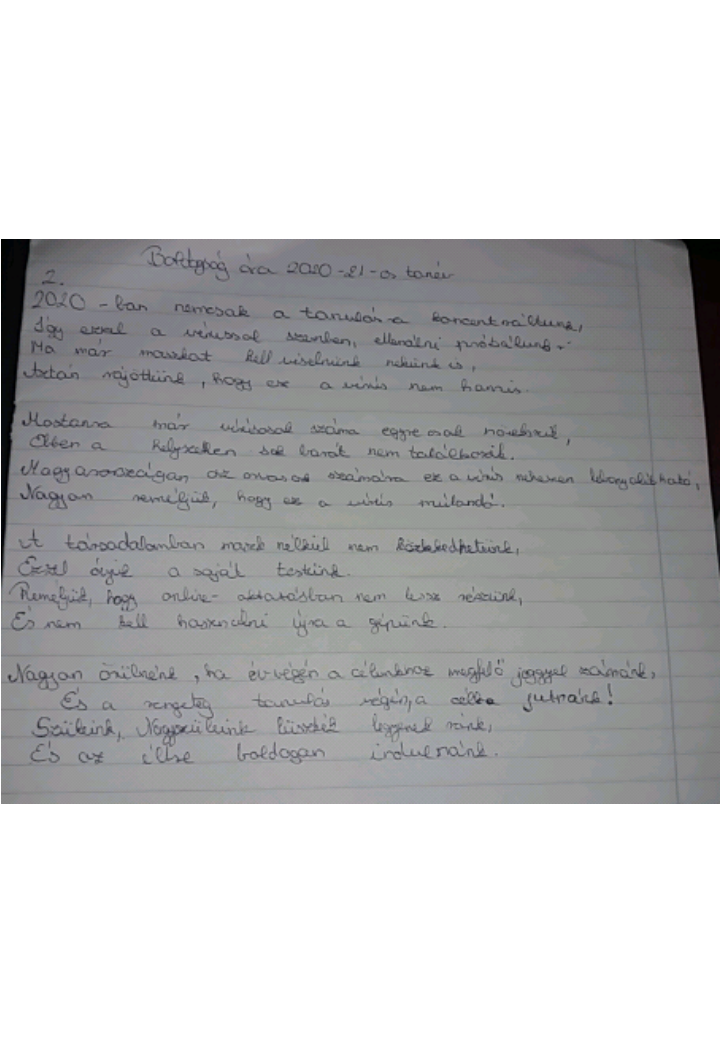 Boldogság óra 2020-21-es tanév
2.
2020-ban nemcsak a tanulásra koncentráltunk,
Így ezzel a vírussal szemben, ellenállni próbálunk.
Ma már maszkot kell viselnünk nekünk is,
Aztán rájöttünk, hogy ez a vírus nem hamis.
Mostanra már vírusosok száma egyre csak növekszik,
Ebben a helyzetben sok barát nem találkozik.
Magyarországon az orvosok számára ez a vírus nehezen lebonyolítható,
Nagyon reméljük, hogy ez a vírus múlandó.
A társadalomban maszk nélkül nem közlekedhetünk,
Ezzel óvjuk a saját testünk.
Reméljük, hogy online-oktatásban nem lesz részünk,
És nem kell használni újra a gépünk.
Nagyon örülnénk, ha év végén a célunkhoz megfelő jeggyel zárnánk,
És a rengeteg tanulás végén, a célba jutnánk!
Szüleink, Nagyszüleink büszkék legyenek ránk,
És az éltbe boldogan indulnánk.